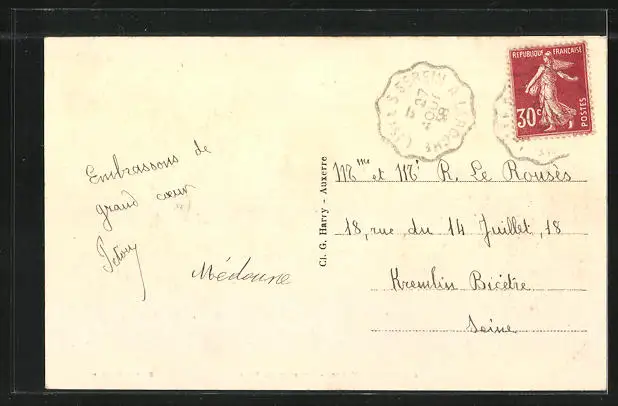 REPUBLIQUE FRANÇAISE
30c
POSTES
27
38
Embrassons de
grand cœur
Médoune
Cl. G. Harry - Auxerre
Mme et Mr R. Le Rousès
18, rue du 14 Juillet, 18
Kremlin Bicêtre
Seine